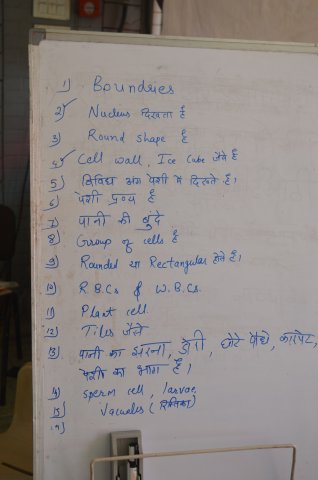 1) Boundries
2) Nucleus दिखता है
3) Round shape है
4) Cell wall, Ice cube जैसे है
5) विविध अंग पेशी मे दिखते है।
6) पेशी द्रव्य है
7) पानी की बुंदे
8) Group of cells है
9) Rounded या Rectangular होते है।
10) R.B.Cs & W.B.Cs.
11) Plant cell.
12) Tiles जैसे
13) पानी का झरना, डोरी, छोटे पौधे, कारपेट,
पेशी का भाग है,
14) sperm cell, larvae
15) Vacuoles (रिक्तिका)